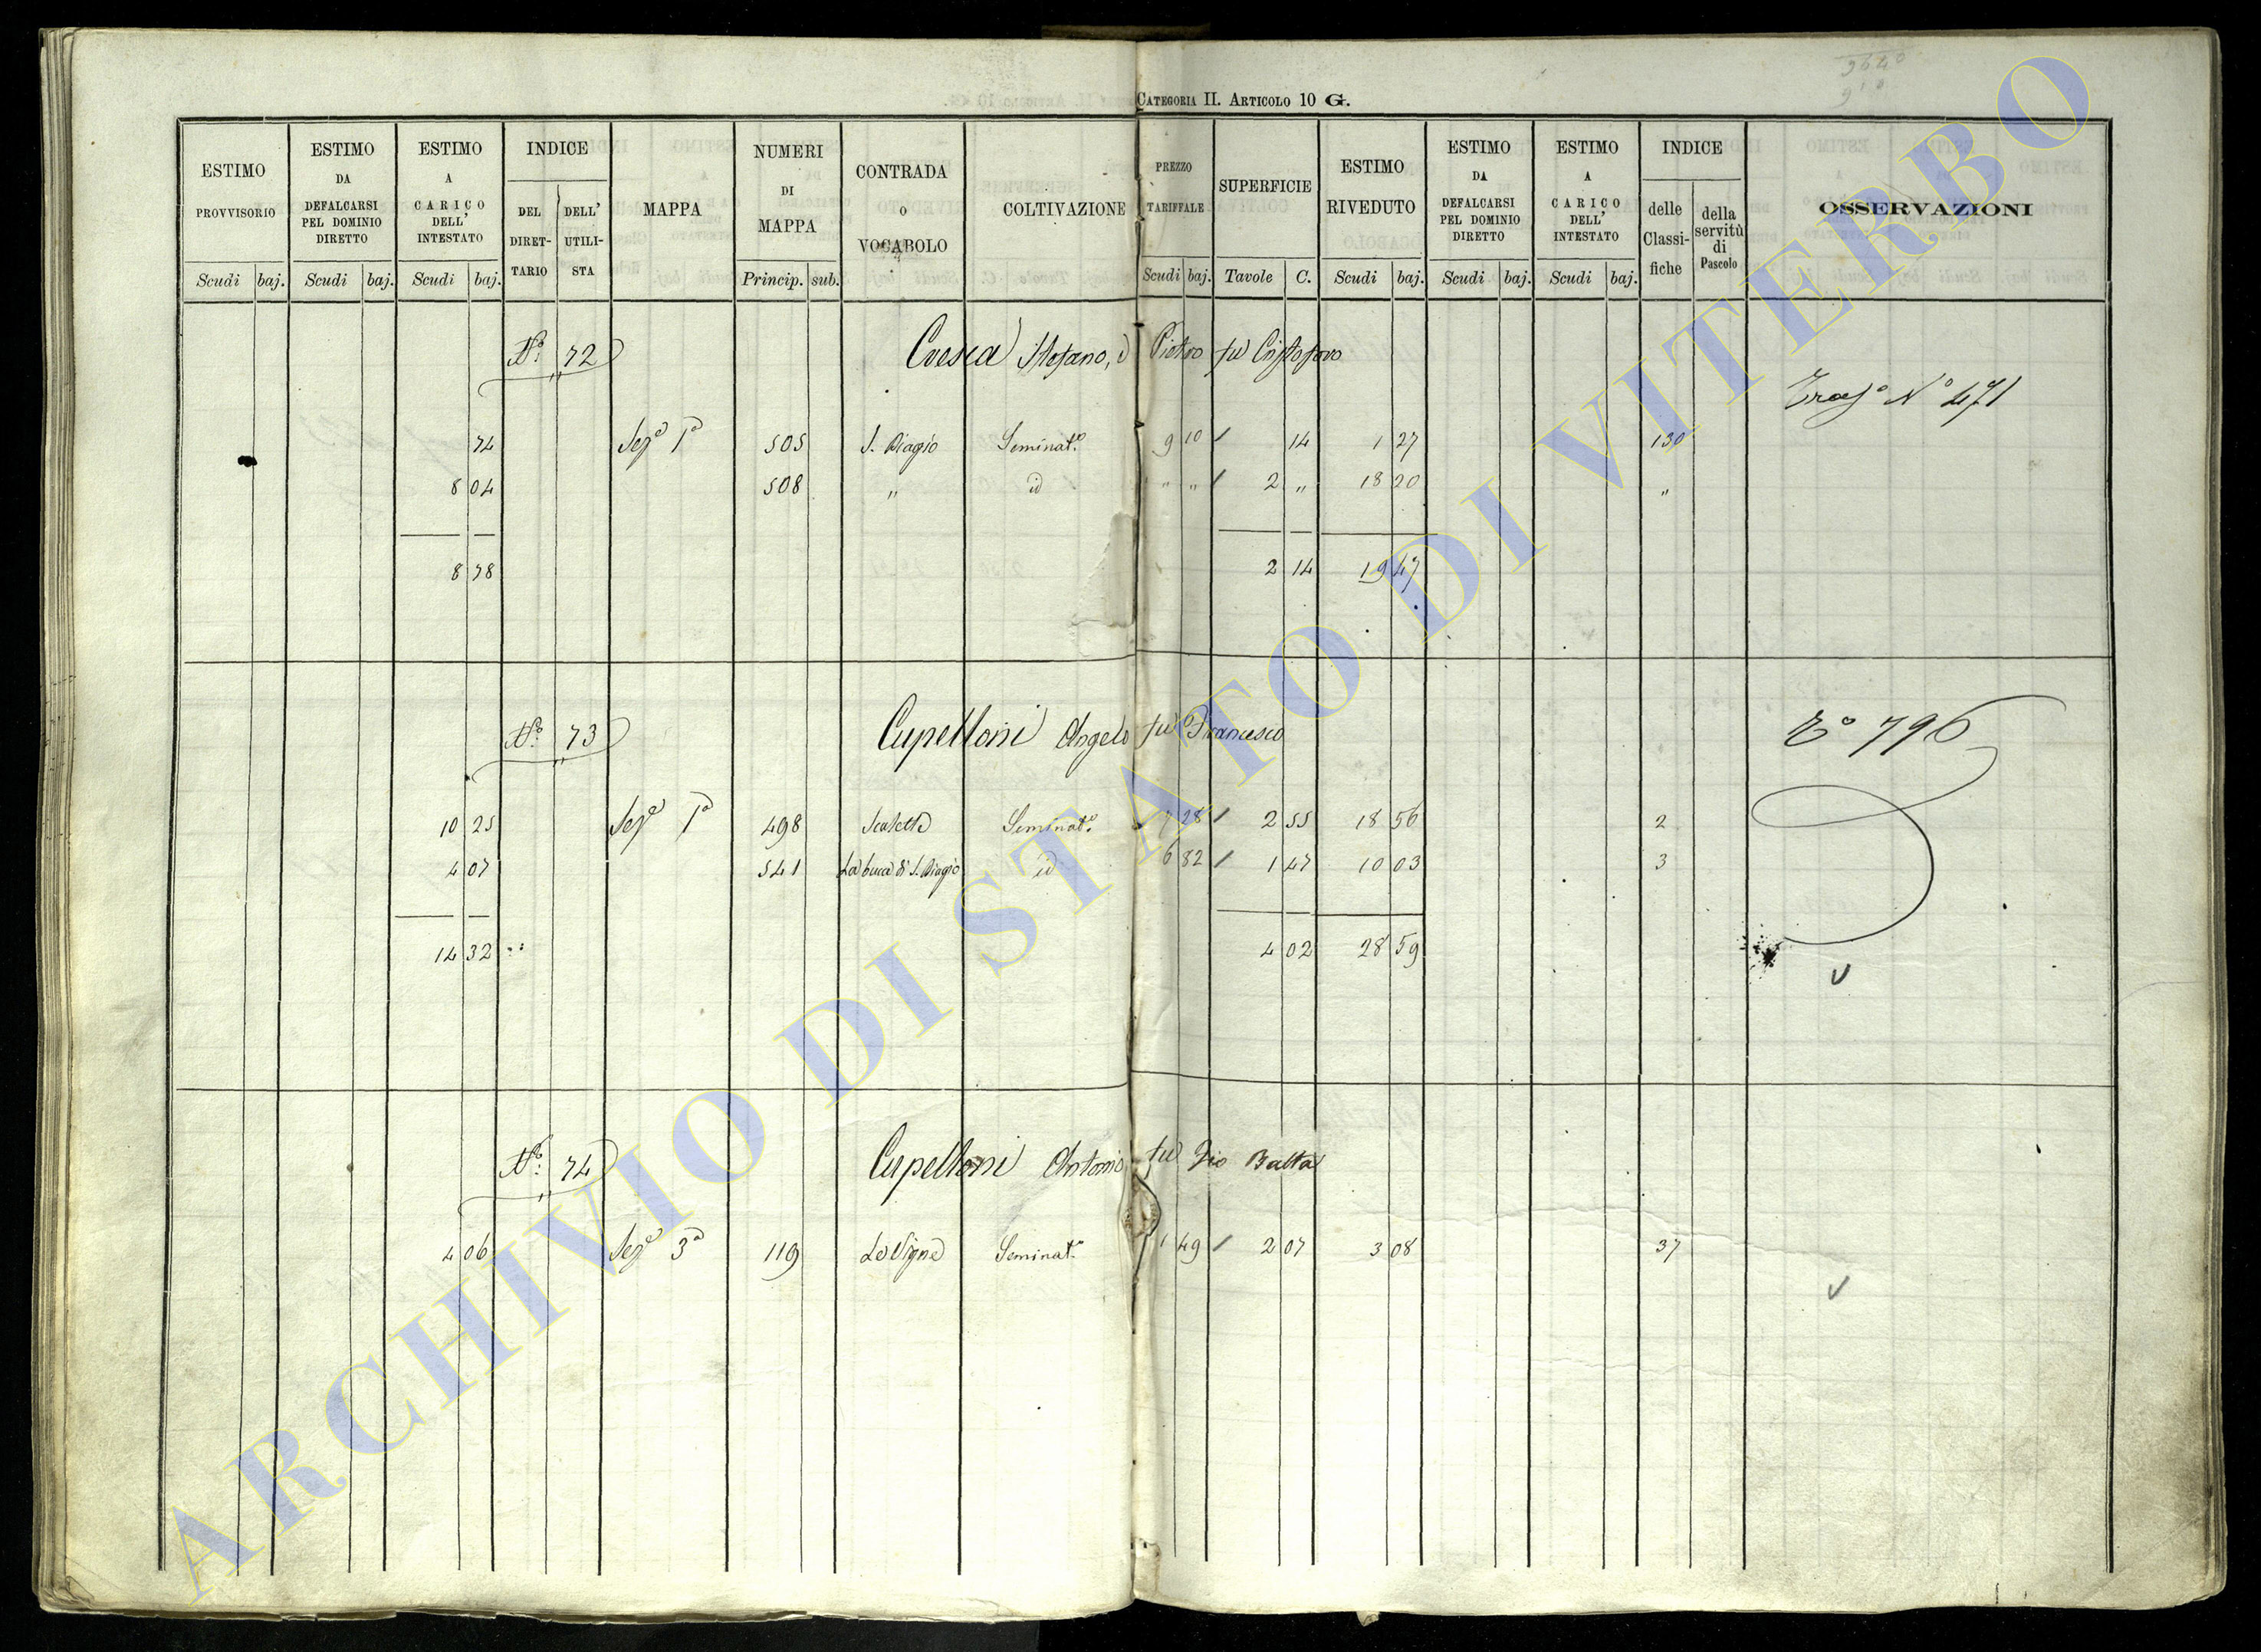 CATEGORIA II. ARTICOLO 10 G.
ESTIMO PROVVISORIO Scudi baj.
ESTIMO DA DEFALCARSI PEL DOMINIO DIRETTO Scudi baj.
ESTIMO A CARICO DELL' INTESTATO Scudi baj.
INDICE DEL DIRET-TARIO DELL' UTILI-STA
MAPPA
NUMERI DI MAPPA Princip. sub.
CONTRADA O VOCABOLO
COLTIVAZIONE
PREZZO TARIFFALE Scudi baj.
SUPERFICIE Tavole C.
ESTIMO RIVEDUTO Scudi baj.
ESTIMO DA DEFALCARSI PEL DOMINIO DIRETTO Scudi baj.
ESTIMO A CARICO DELL' INTESTATO Scudi baj.
INDICE delle Classi-fiche della servitù di Pascolo
OSSERVAZIONI
No: 72 Stefano, e Pietro fu Cristoforo
N° 471
74 Sez.e 1a 505 S. Biagio Seminat.o 9 10 / 14 1 27 130
8 04 508 „ id „ „ / 2 „ 18 20 „
8 78 2 14 19 47
No: 73 Cupelloni Angelo fu Francesco
T° 796
10 25 Sez.e 1a 498 Scaletta Seminat.o 7 28 / 2 55 18 56 2
4 07 541 La buca di S. Biagio id 6 82 / 1 47 10 03 3
14 32 4 02 28 59
No: 74 Cupelloni Antonio fu Gio Batta
4 06 Sez.e 3a 119 Le Vigne Seminat.o 1 49 / 2 07 3 08 37
ARCHIVIO DI STATO DI VITERBO